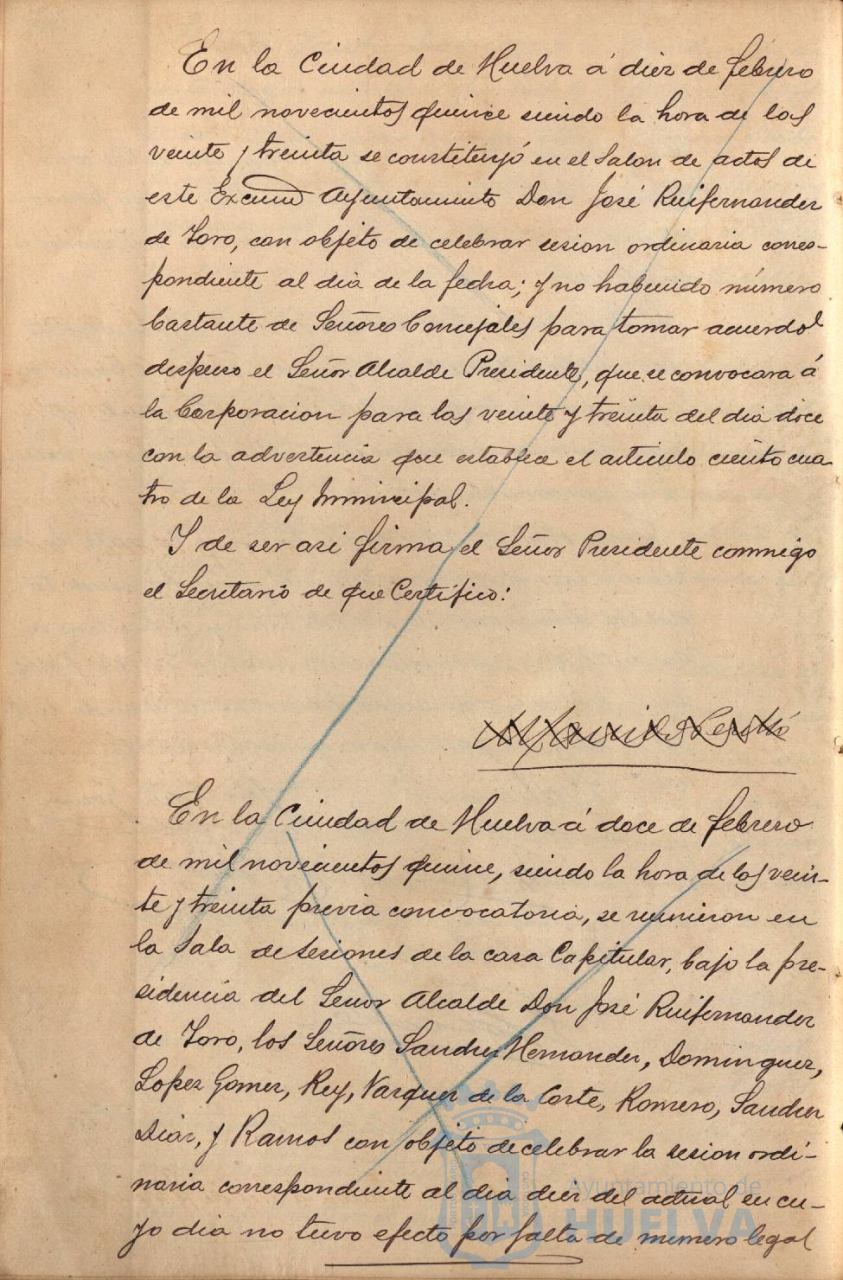 En la Ciudad de Huelva á diez de febrero
de mil novecientos quince siendo la hora de las
veinte y treinta se constituyó en el Salon de actos de
este Excmo Ayuntamiento Don José Ruifernandez
de Toro, con objeto de celebrar sesion ordinaria corres-
pondiente al dia de la fecha; y no habiendo número
bastante de Señores Concejales para tomar acuerdos
dispuso el Señor Alcalde Presidente, que se convocara á
la Corporacion para las veinte y treinta del dia doce
con la advertencia que establece el articulo ciento cua-
tro de la Ley Municipal.
Y de ser asi firma el Señor Presidente conmigo
el Secretario de que Certifico:
En la Ciudad de Huelva á doce de febrero
de mil novecientos quince, siendo la hora de las vein-
te y treinta previa convocatoria, se reunieron en
la Sala de Sesiones de la casa Capitular, bajo la pre-
sidencia del Señor Alcalde Don José Ruifernandez
de Toro, los Señores Sanchez Hernandez, Dominguez,
Lopez Gomez, Rey, Vazquez de la Corte, Romero, Sanchez
Diaz, y Ramos con objeto de celebrar la sesion ordi-
naria correspondiente al dia diez del actual en cu-
yo dia no tuvo efecto por falta de numero legal
Ayuntamiento de
HUELVA